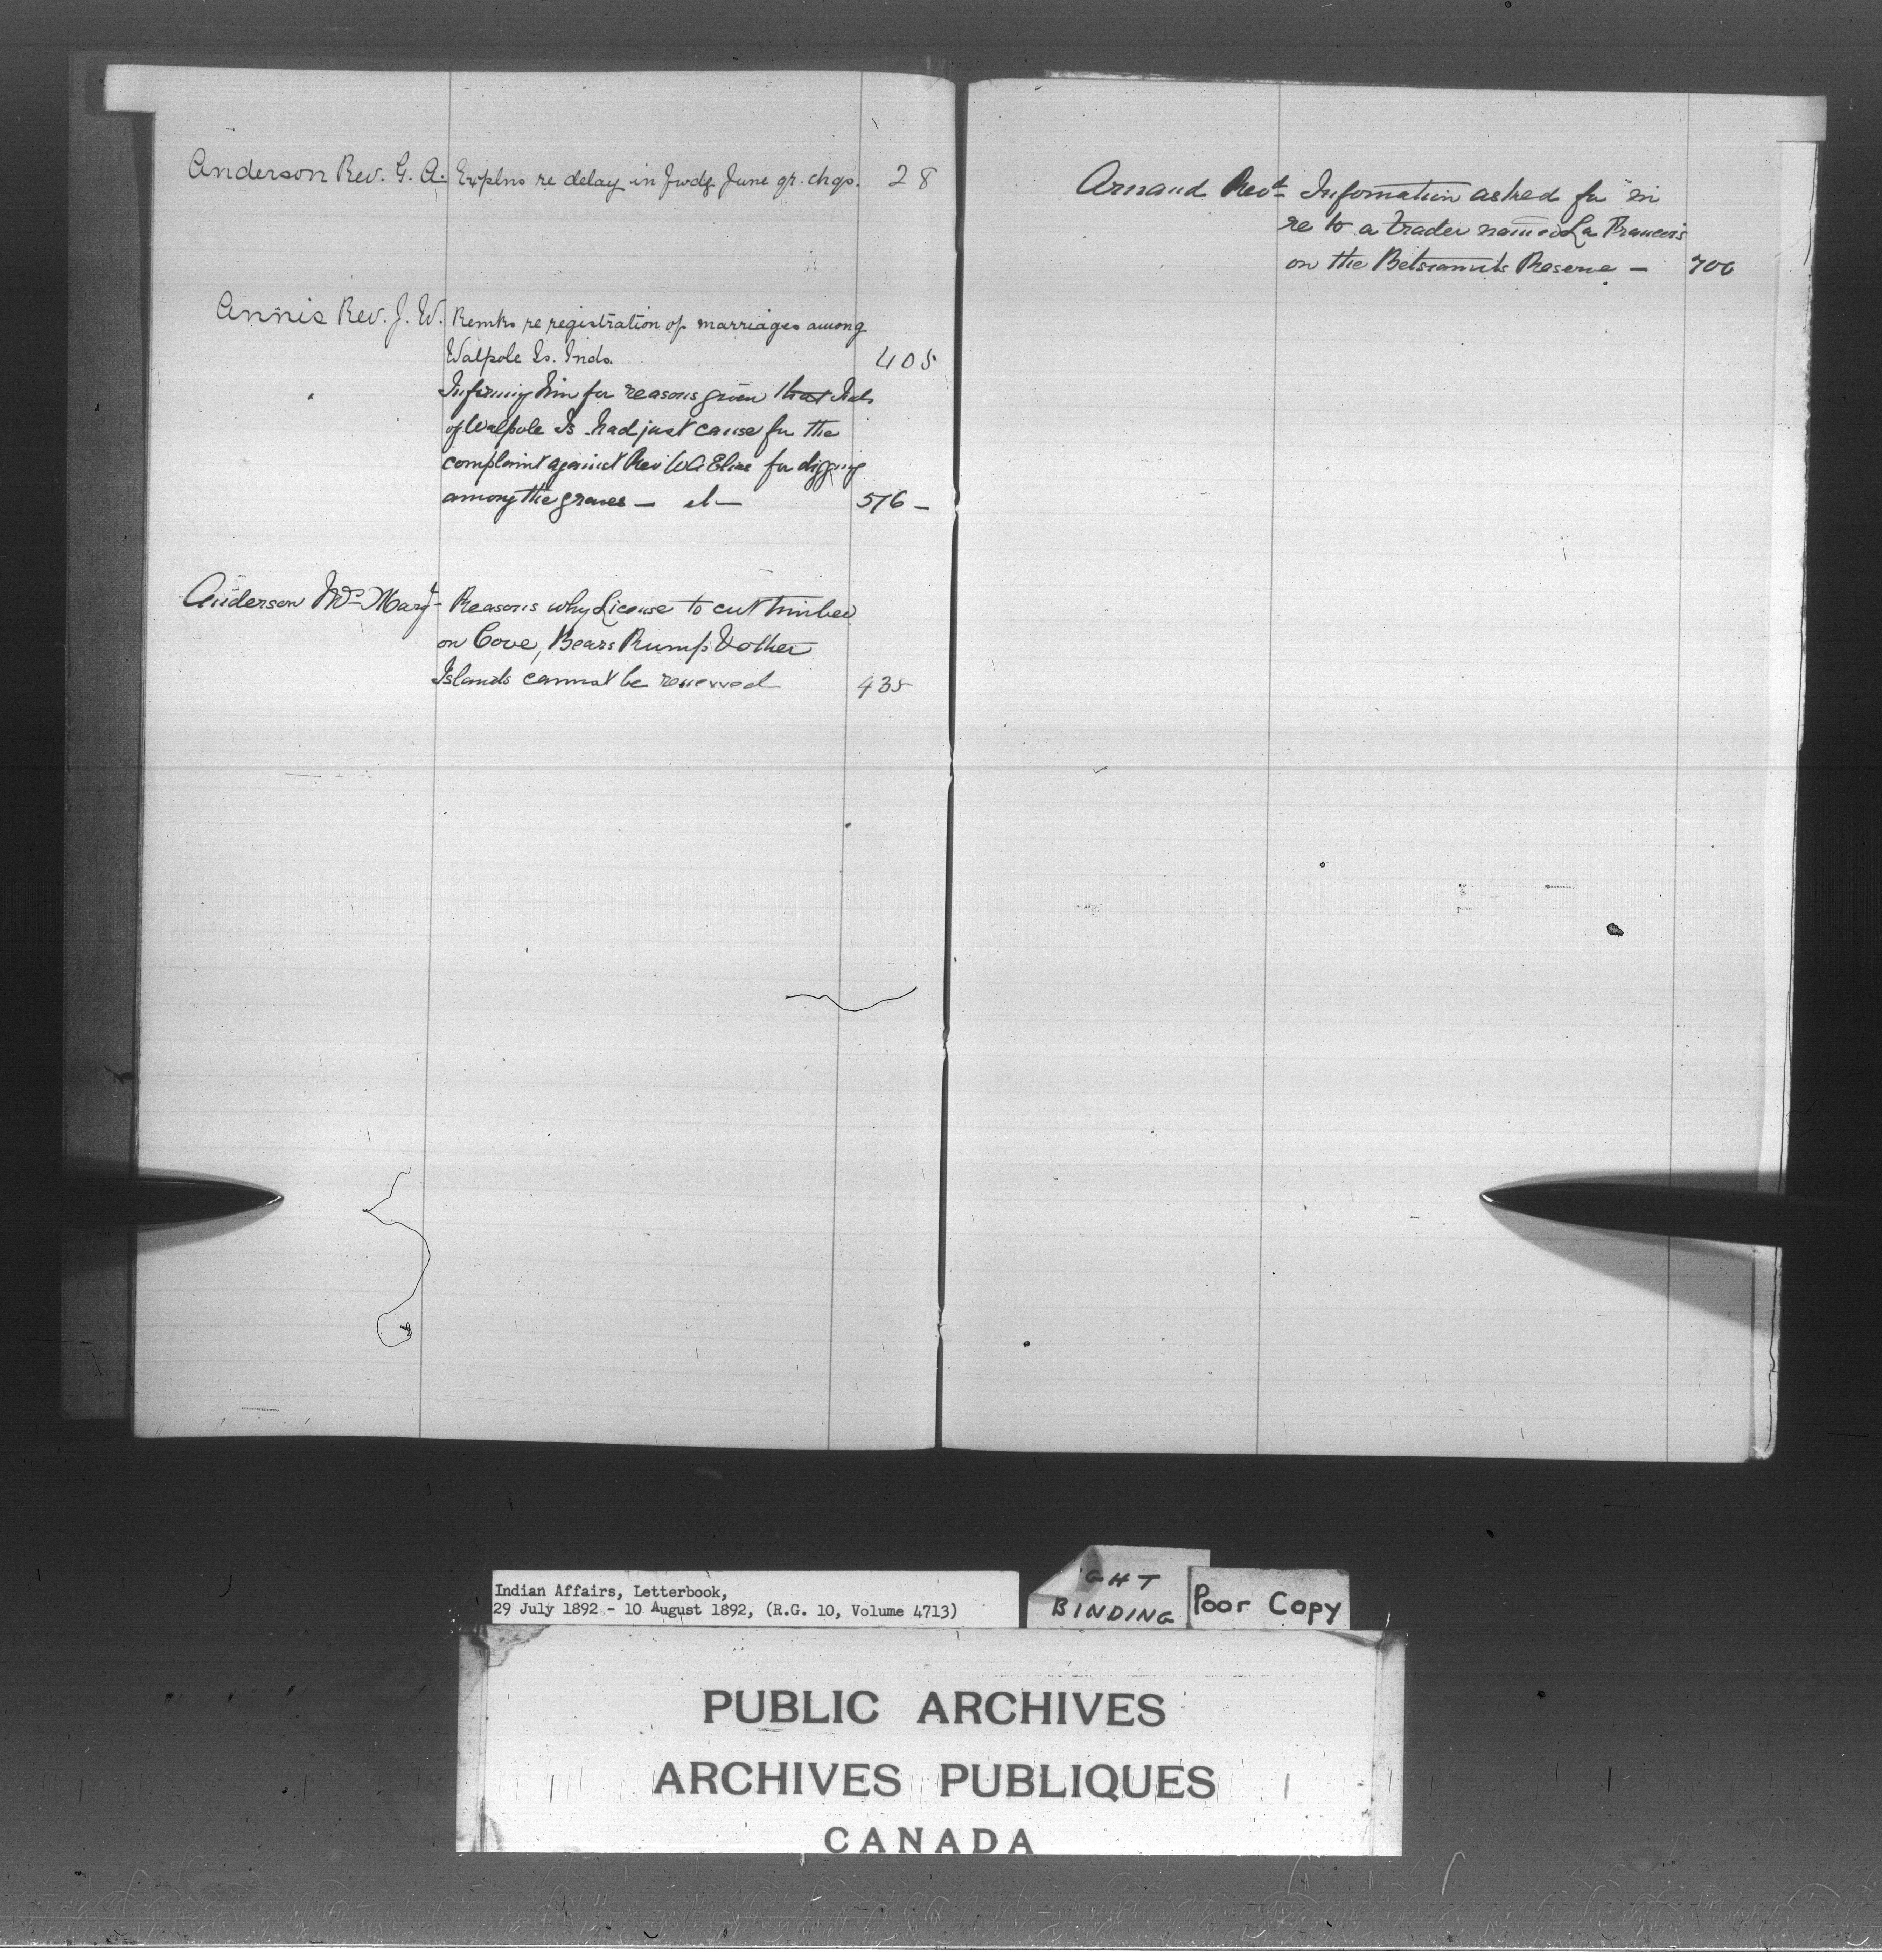 Anderson Rev. G. A. Explns re delay in fwdg June qr. chqs. 28
Annis Rev. J. W. Remks re registration of marriages among
Walpole Is. Inds. 405
Informing him for reasons given that Inds
of Walpole Is had just cause for the
complaint against Rev W A Elias for digging
among the graves — 576 —
Anderson Mrs Mary - Reasons why License to cut timber
on Cove, Bears Rump & other
Islands cannot be renewed 435
Arnaud Revd Information asked for in
re to a trader named La Francois
on the Betsiamits Reserve — 700
Indian Affairs, Letterbook,
29 July 1892 - 10 August 1892, (R.G. 10, Volume 4713)
GHT
BINDING
Poor Copy
PUBLIC ARCHIVES
ARCHIVES PUBLIQUES
CANADA